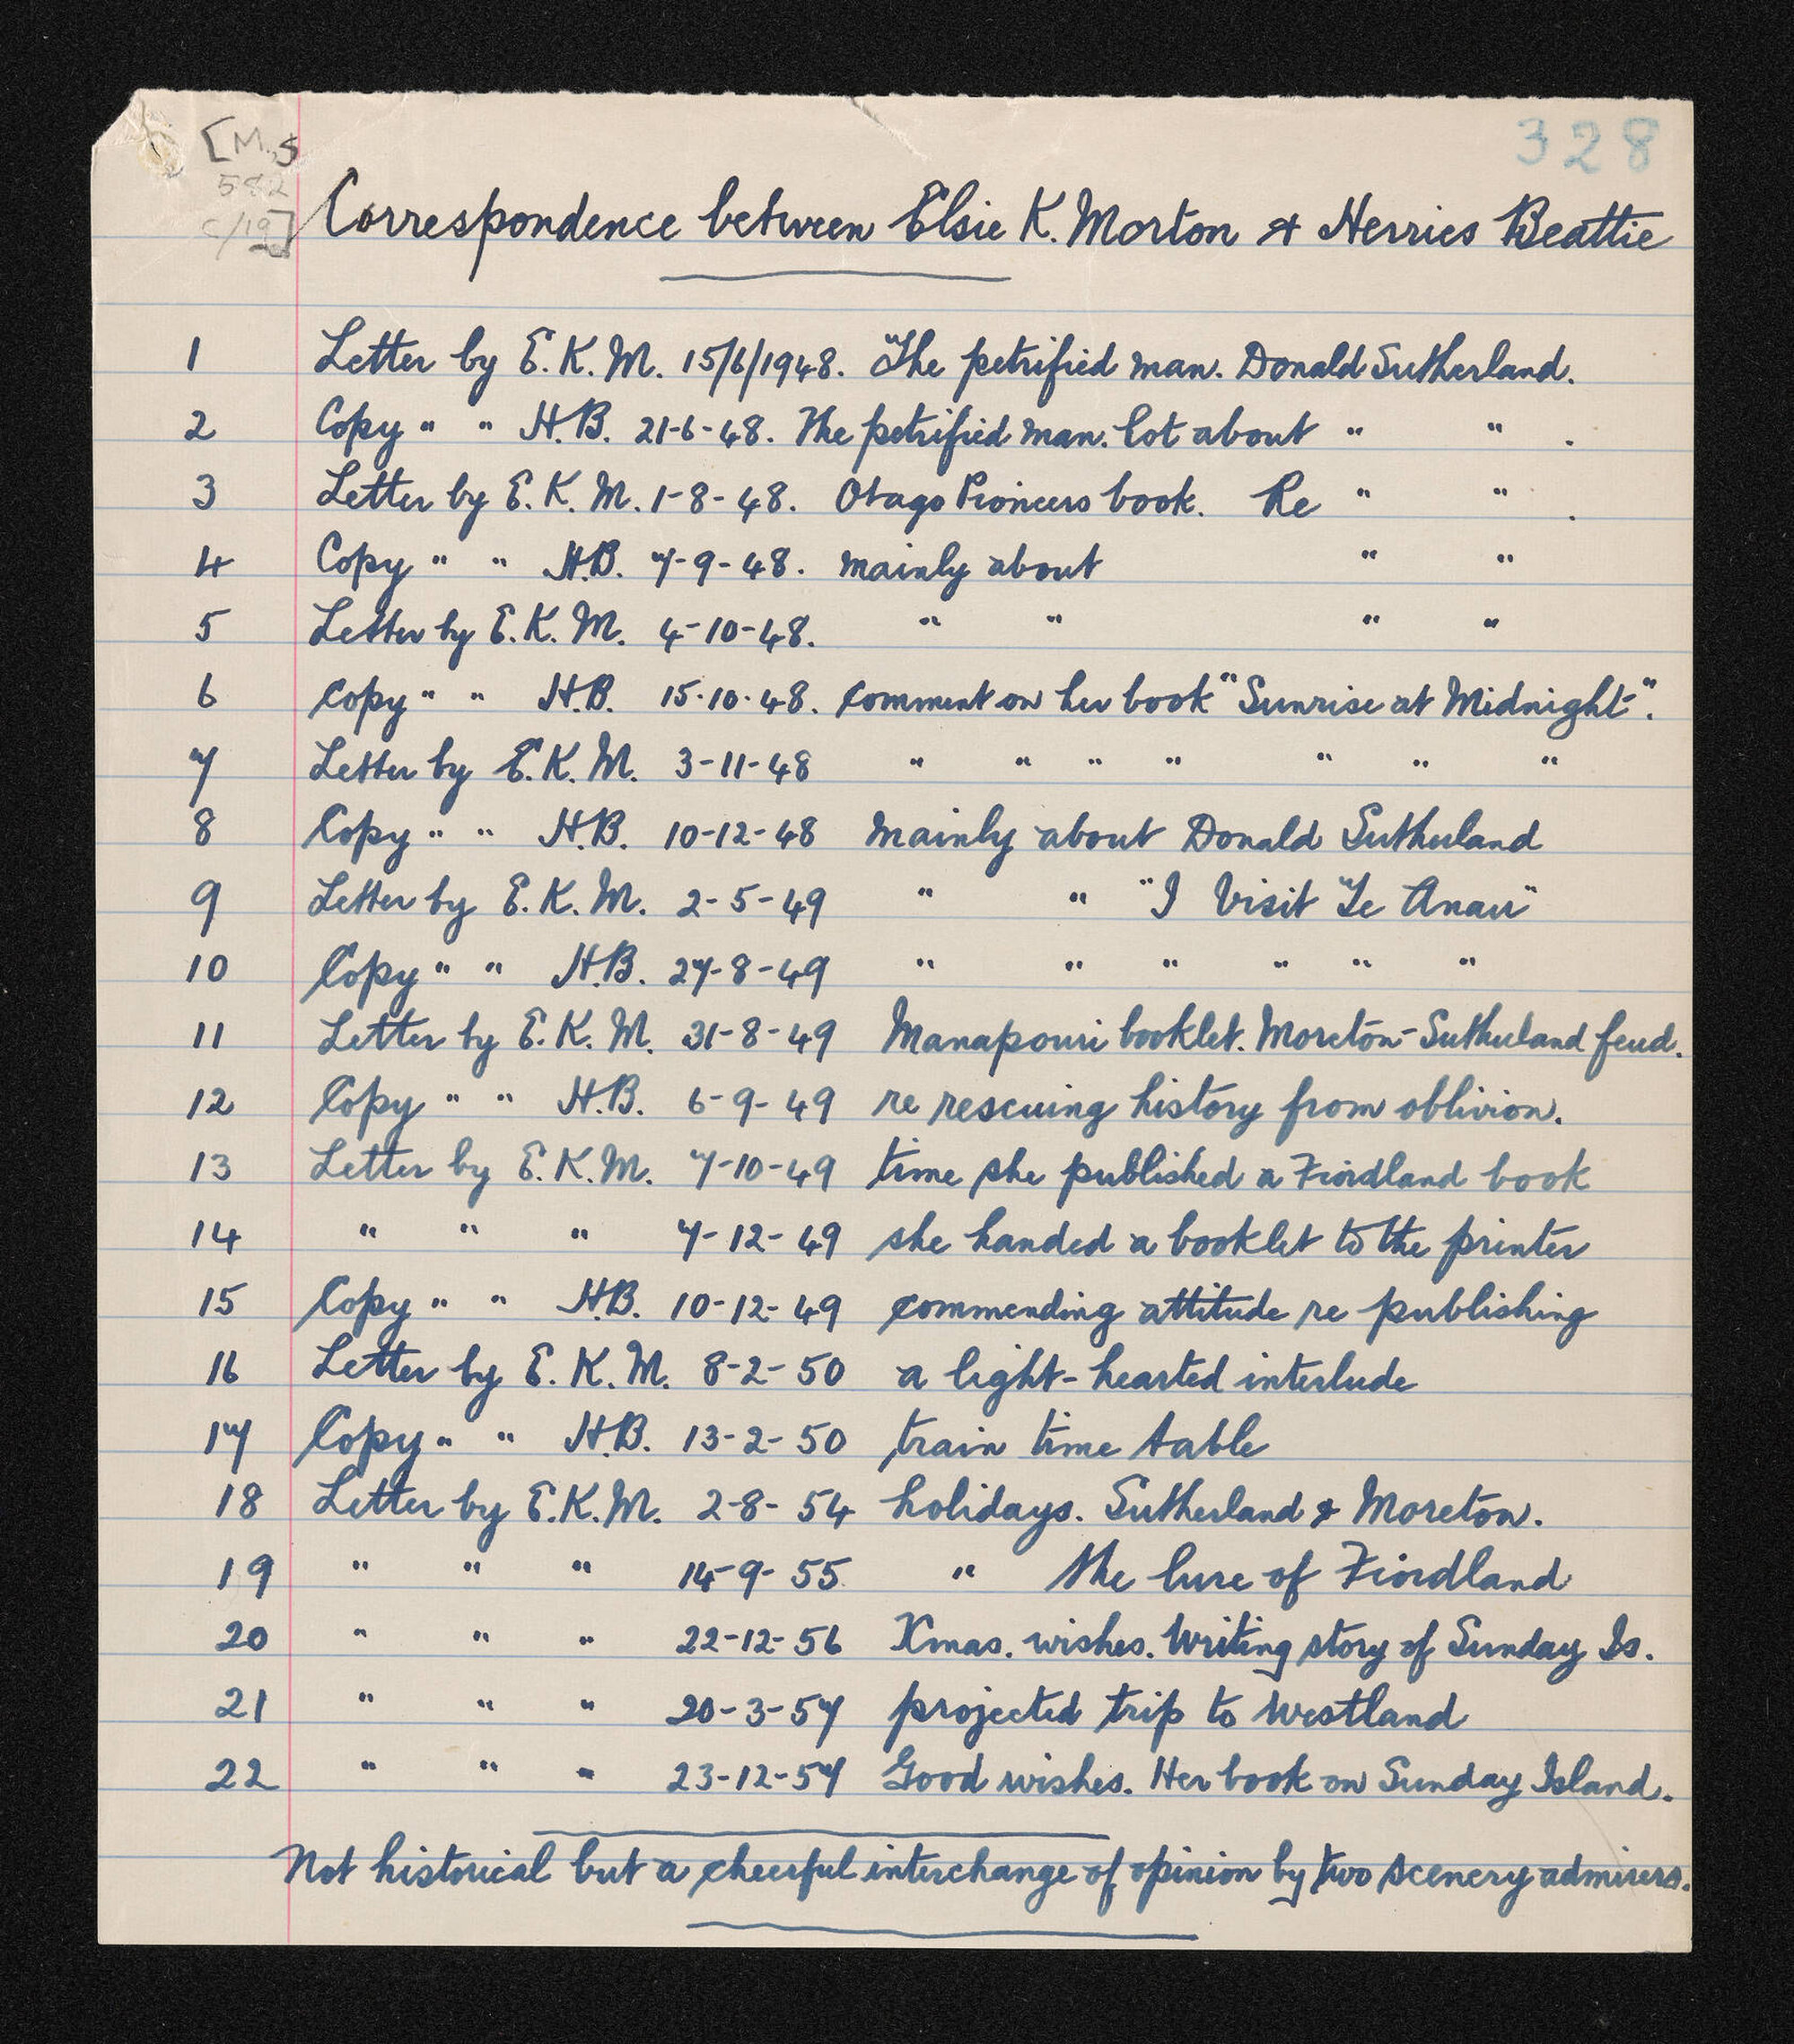 [M.S
328
582
c/19]
Correspondence between Elsie K. Morton & Herries Beattie
1 Letter by E. K. M. 15/6/1948. "The petrified man. Donald Sutherland.
2 Copy " " H.B. 21-6-48. The petrified man. Lot about " " .
3 Letter by E. K. M. 1-8-48. Otago Pioneers book. Re " " .
4 Copy " " H.B. 7-9-48. mainly about " "
5 Letter by E. K. M. 4-10-48. " " " "
6 Copy " " H.B. 15.10.48. comment on her book "Sunrise at Midnight".
7 Letter by E. K. M. 3-11-48 " " " " " " "
8 Copy " " H.B. 10-12-48 mainly about Donald Sutherland
9 Letter by E. K. M. 2-5-49 " " "I Visit Te Anau"
10 Copy " " H.B. 27-8-49 " " " " " "
11 Letter by E. K. M. 31-8-49 Manapouri booklet. Moreton-Sutherland feud.
12 Copy " " H.B. 6-9-49 re rescuing history from oblivion.
13 Letter by E. K. M. 7-10-49 time she published a Fiordland book
14 " " " 7-12-49 she handed a booklet to the printer
15 Copy " " H.B. 10-12-49 commending attitude re publishing
16 Letter by E. K. M. 8-2-50 a light-hearted interlude
17 Copy " " H.B. 13-2-50 train time table
18 Letter by E. K. M. 2-8-54 holidays. Sutherland & Moreton.
19 " " " 14-9-55 " The lure of Fiordland
20 " " " 22-12-56 Xmas. wishes. Writing story of Sunday Is.
21 " " " 20-3-57 projected trip to Westland
22 " " " 23-12-57 Good wishes. Her book on Sunday Island.
Not historical but a cheerful interchange of opinion by two scenery admirers.